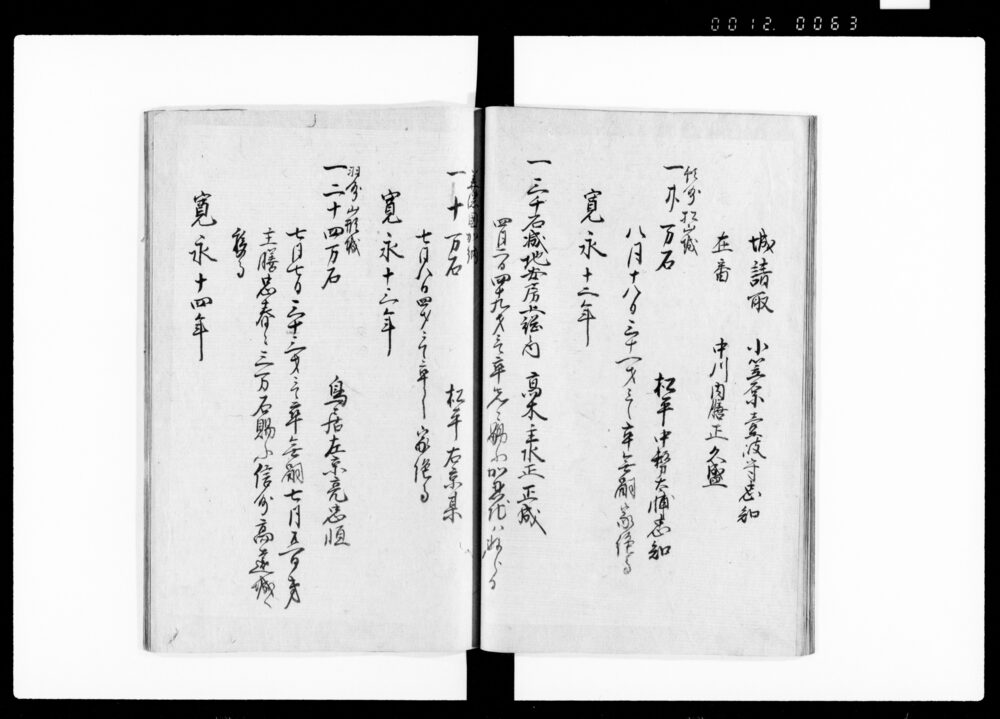 0012.0063
城請取 小笠原壹岐守忠知
在番 中川内膳正久盛
豫州松山城
一廿万石 松平中務大輔忠知
八月十八日三十一才ニ而卒無嗣家絶ル
寛永十二年
一三千石減地安房上総内 高木主水正正成
四月二日四十九才ニ而卒
寛永十三年
一十万石 松平右京某
七月八日四才ニ而卒し家絶ル
羽州山形城
一二十四万石 鳥居左京亮忠恒
七月七日三十三才ニ而卒無嗣七月五日弟
主膳忠春ニ三万石賜ふ信州高遠城ニ
移る
寛永十四年